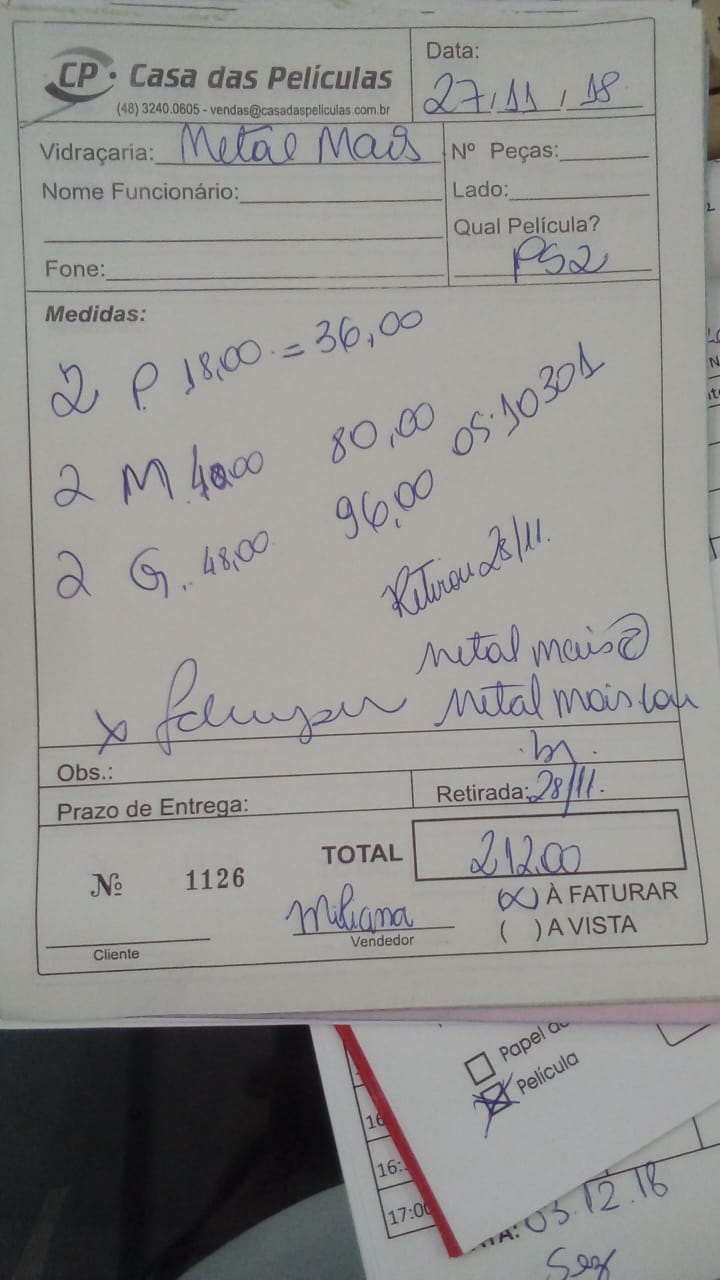 CP · Casa das Películas
(48) 3240.0605 - vendas@casadaspeliculas.com.br
Data:
27/11/18
Vidraçaria: Metal Mais
Nº Peças:
Nome Funcionário:
Lado:
Qual Película?
PS2
Fone:
Medidas:
2 P 18,00 = 36,00
2 M 40,00 80,00 05:10301
2 G. 48,00 96,00
Retirou 28/11.
metal mais@
x
metal mais.com
.br.
Obs.:
Prazo de Entrega:
Retirada: 28/11.
Nº 1126
TOTAL 212,00
(x) À FATURAR
Miliana
( ) A VISTA
Cliente
Vendedor
Papel
Película
16
16:
17:00
03.12.18